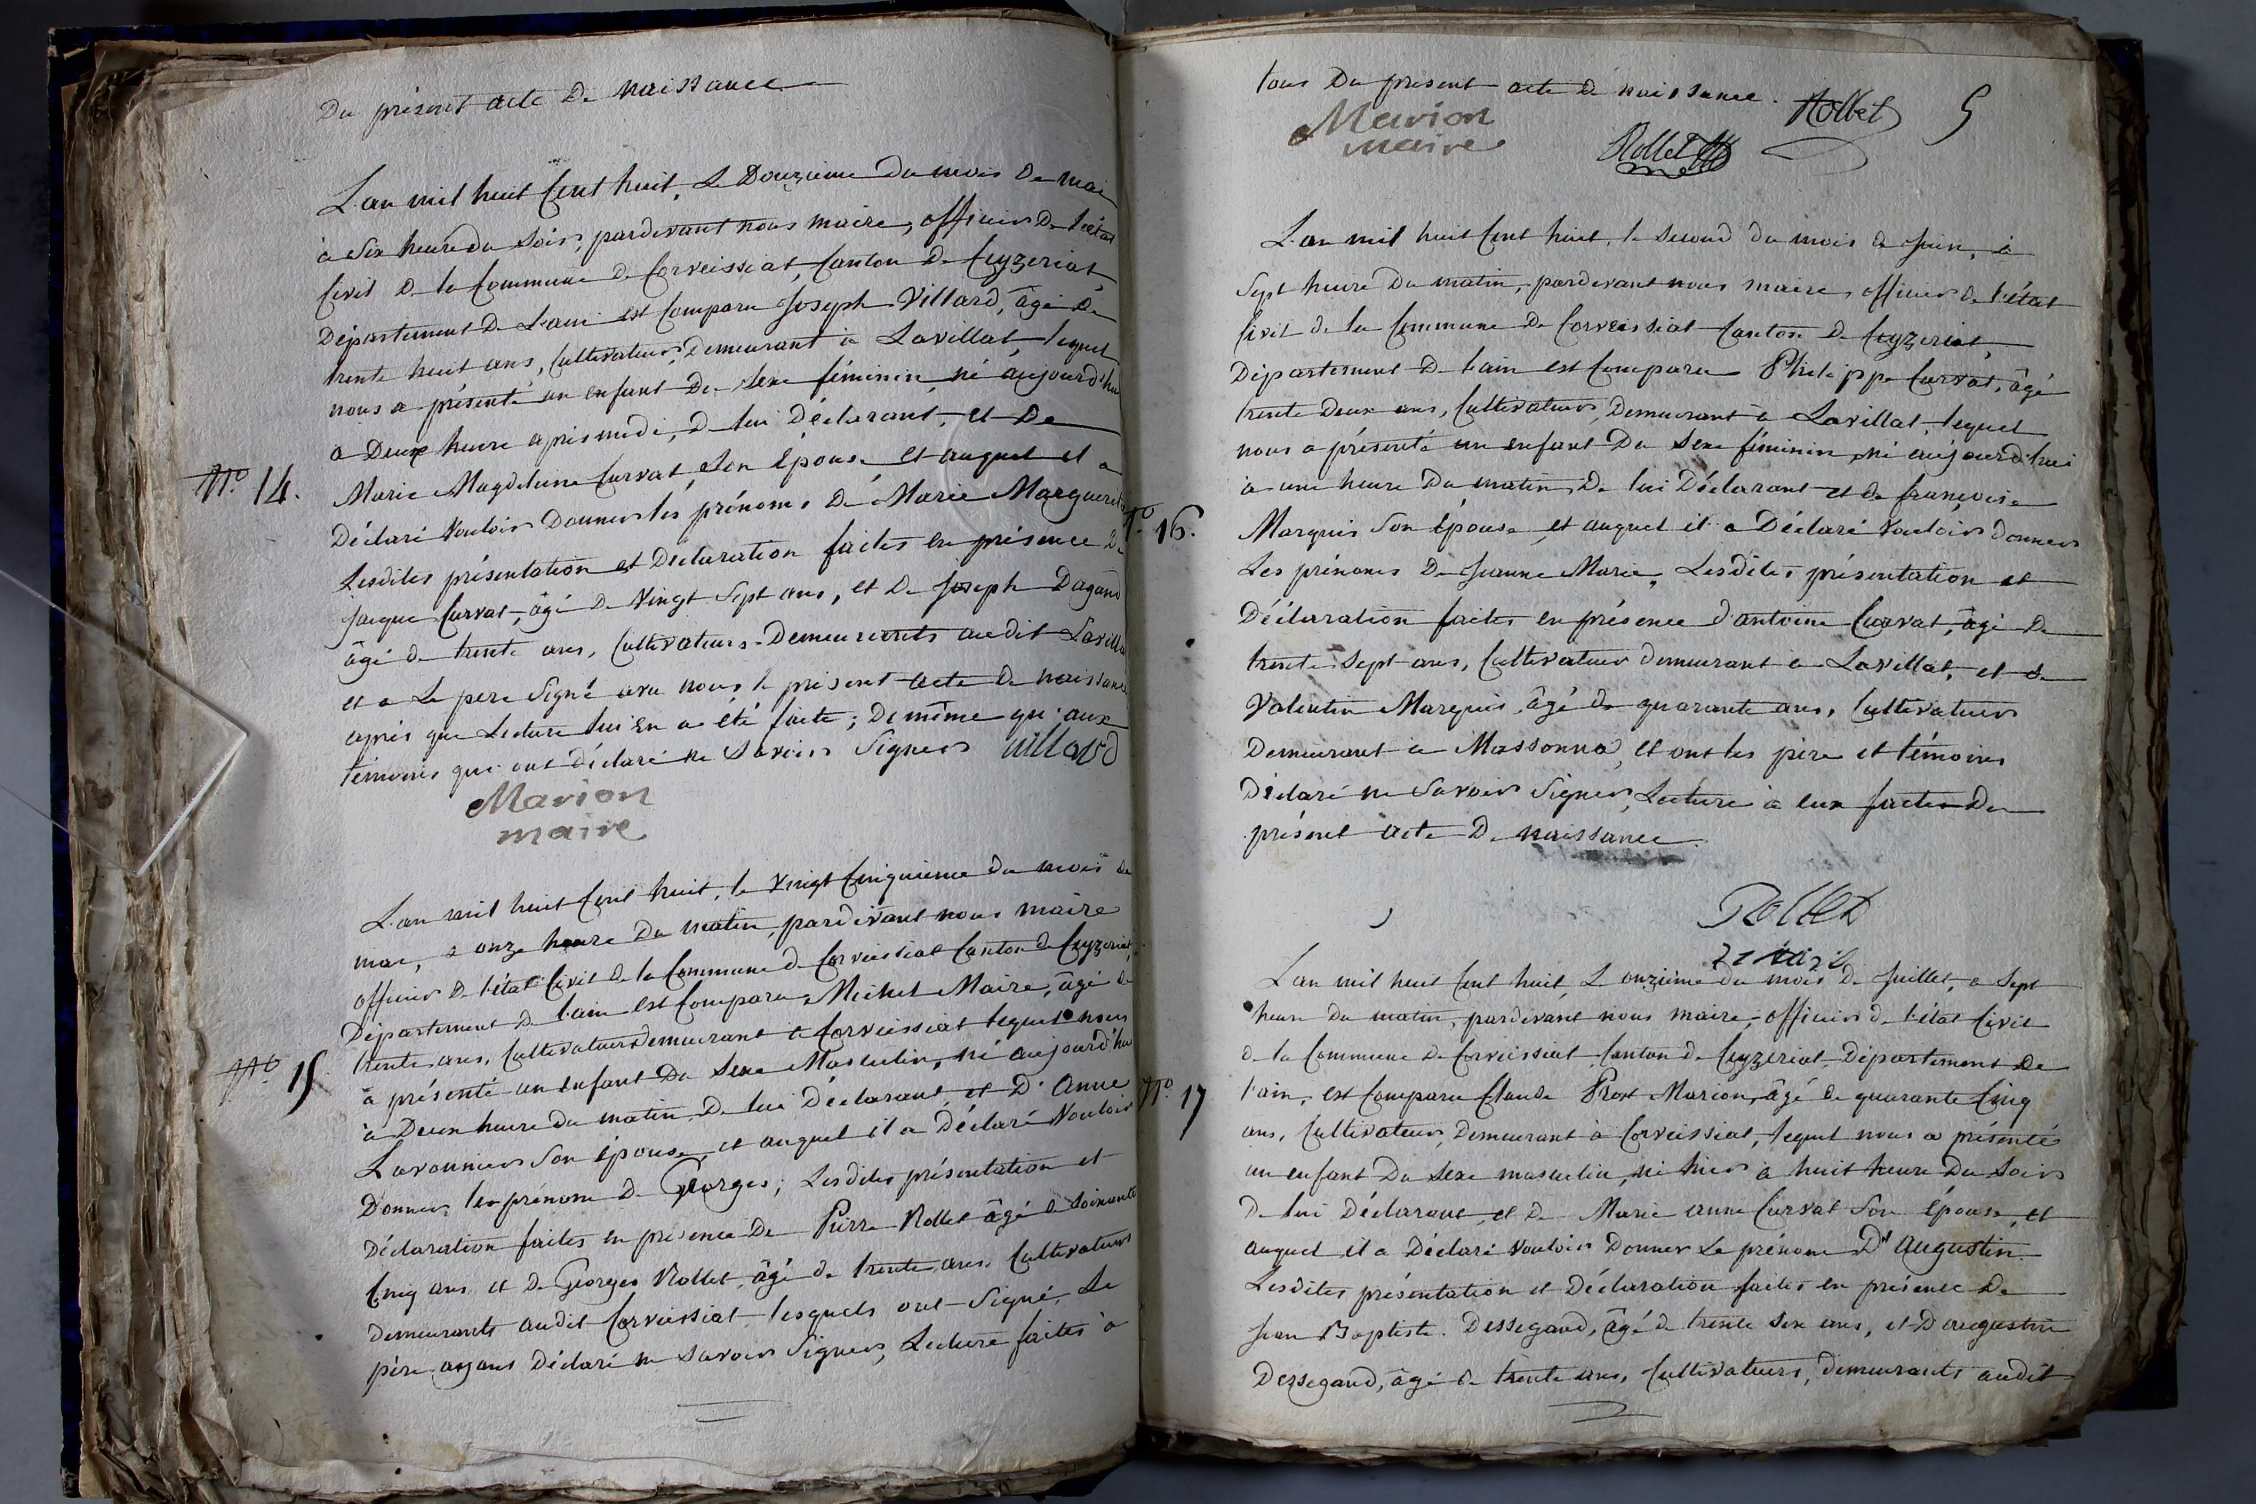 Du présent acte De naissance
L'an mil huit Cent huit, Le Douzieme Du mois De mai
à Six heure du Soir, pardevant nous maire, officier De l'état
Civil De la Commune De Corveissiat, Canton De Ceyzeriat
Département De L'ain est Comparu Joseph Villard, âgé De
trente huit ans, Cultivateur, Demeurant à Lavillat, lequel
nous a présenté un enfant Du Sexe féminin, né aujourd'hui
à Deux heure après midi, De lui Déclarant, et De
N.º 14.
Marie Magdeleine Curvat, Son Épouse et auquel il a
Déclaré Vouloir Donner les prénoms De Marie Marguerite
Lesdites présentation et Déclaration faites en présence De
Jacque Curvat, âgé De Vingt Sept ans, et De Joseph Dagand
âgé De trente ans, Cultivateurs Demeurants audit Lavilla
et a Le pere Signé avec nous le présent acte De naissance
après que Lecture lui En a été faite; De même qu'aux
témoins qui ont déclaré ne Savoir Signer villard
Marion
maire
L'an mil huit Cent huit, le Vingt Cinquieme Du mois De
mai, à onze heure Du matin, pardevant nous maire
officier De l'état Civil De la Commune De Corveissiat Canton De Ceyzeriat,
Département De l'ain est Comparu Michel Maire, âgé De
trente ans, Cultivateur Demeurant à Corveissiat lequel nous
N.º 15
a présenté un enfant Du Sexe Masculin, né aujourd'hui
à Deux heure Du matin De lui Déclarant, et D'Anne
Lavounier Son Épouse, et auquel il a Déclaré Vouloir
Donner les prénom De Georges; Lesdites présentation et
Déclaration faites en présence De Pierre Rollet âgé De Soixante
Cinq ans, et De Georges Rollet, âgé De trente ans, Cultivateurs
Demeurants audit Corveissiat lesquels ont Signé, Le
père ayant Déclaré ne Savoir Signer, Lecture faites à
tous Du présent acte De naissance. Rollet 5
Marion
maire
Rollet
L'an mil huit Cent huit, le Second Du mois De Juin, à
Sept heure Du matin, pardevant nous maire, officier De l'état
Civil De la Commune De Corveissiat Canton De Ceyzeriat,
Département De l'ain est Comparu Philippe Curvat, âgé
trente Deux ans, Cultivateur, Demeurant à Lavillat, lequel
nous a présenté un enfant Du Sexe féminin, né aujourd'hui
à une heure Du matin De lui Déclarant et De françoise
N.º 16.
Marquis Son Épouse, et auquel il a Déclaré Vouloir Donner
Les prénoms De Jeanne Marie, Lesdites présentation et
Déclaration faites en présence d'antoine Curvat, âgé De
trente Sept ans, Cultivateur demeurant à Lavillat, et De
Valentin Marquis, âgé De quarante ans, Cultivateur
Demeurant à Massonna, et ont les père et témoins
Déclaré ne Savoir Signer, Lecture à eux faites Du
présent acte De naissance.
Rollet
L'an mil huit Cent huit, L'onzième Du mois De Juillet, à Sept
heure Du matin, pardevant nous maire, officier De l'état Civil
De la Commune De Corveissiat, Canton De Ceyzeriat, Département De
N.º 17
l'ain, est Comparu Claude Prost Marion, âgé De quarante Cinq
ans, Cultivateur, Demeurant à Corveissiat, lequel nous a présenté
un enfant Du Sexe masculin, né hier à huit heure Du Soir
De lui Déclarant, et De Marie anne Curvat Son Épouse, et
auquel il a Déclaré Vouloir Donner Le prénom D'Augustin.
Lesdites présentation et Déclaration faites en présence De
Jean Baptiste Dessegand, âgé De trente Six ans, et D'augustin
Dessegand, âgé De trente ans, Cultivateurs, Demeurants audit